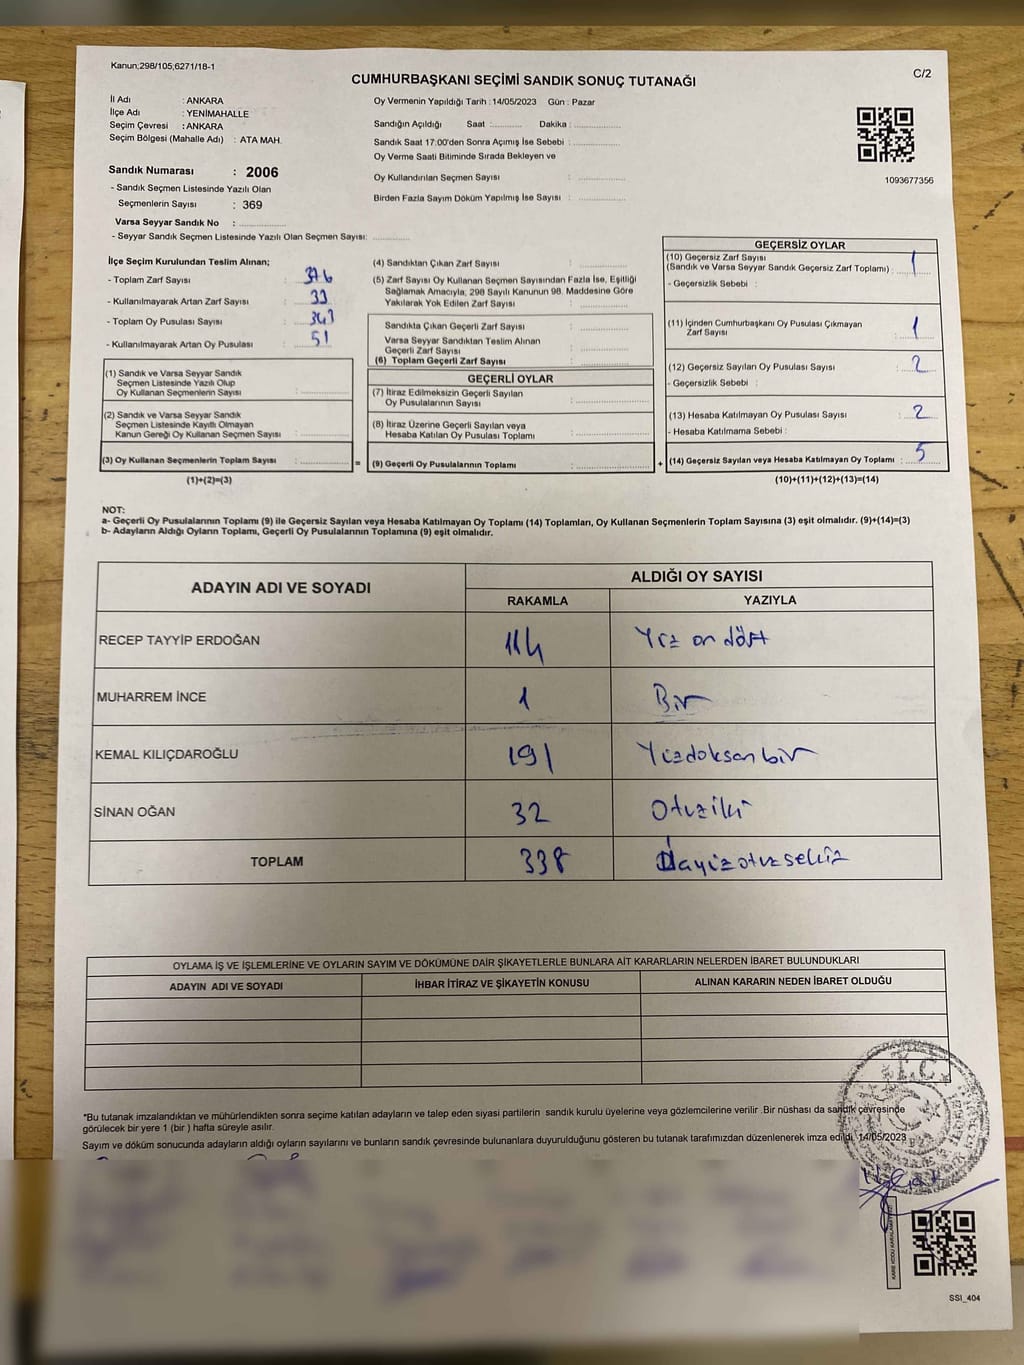 Kanun;298/105,6271/18-1
C/2
CUMHURBAŞKANI SEÇİMİ SANDIK SONUÇ TUTANAĞI
İl Adı : ANKARA
İlçe Adı : YENİMAHALLE
Seçim Çevresi : ANKARA
Seçim Bölgesi (Mahalle Adı) : ATA MAH.
Sandık Numarası : 2006
- Sandık Seçmen Listesinde Yazılı Olan
Seçmenlerin Sayısı : 369
Varsa Seyyar Sandık No :
- Seyyar Sandık Seçmen Listesinde Yazılı Olan Seçmen Sayısı:
Oy Vermenin Yapıldığı Tarih : 14/05/2023 Gün : Pazar
Sandığın Açıldığı Saat : Dakika :
Sandık Saat 17:00'den Sonra Açımış İse Sebebi :
Oy Verme Saati Bitiminde Sırada Bekleyen ve
Oy Kullandırılan Seçmen Sayısı :
Birden Fazla Sayım Döküm Yapılmış İse Sayısı :
1093677356
İlçe Seçim Kurulundan Teslim Alınan;
- Toplam Zarf Sayısı : 376
- Kullanılmayarak Artan Zarf Sayısı : 33
- Toplam Oy Pusulası Sayısı :
- Kullanılmayarak Artan Oy Pusulası : 51
(1) Sandık ve Varsa Seyyar Sandık
Seçmen Listesinde Yazılı Olup
Oy Kullanan Seçmenlerin Sayısı :
(2) Sandık ve Varsa Seyyar Sandık
Seçmen Listesinde Kayıtlı Olmayan
Kanun Gereği Oy Kullanan Seçmen Sayısı :
(3) Oy Kullanan Seçmenlerin Toplam Sayısı : =
(1)+(2)=(3)
(4) Sandıktan Çıkan Zarf Sayısı :
(5) Zarf Sayısı Oy Kullanan Seçmen Sayısından Fazla İse, Eşitliği
Sağlamak Amacıyla; 298 Sayılı Kanunun 98. Maddesine Göre
Yakılarak Yok Edilen Zarf Sayısı :
Sandıkta Çıkan Geçerli Zarf Sayısı :
Varsa Seyyar Sandıktan Teslim Alınan
Geçerli Zarf Sayısı :
(6) Toplam Geçerli Zarf Sayısı :
GEÇERLİ OYLAR
(7) İtiraz Edilmeksizin Geçerli Sayılan
Oy Pusulalarının Sayısı :
(8) İtiraz Üzerine Geçerli Sayılan veya
Hesaba Katılan Oy Pusulası Toplamı :
(9) Geçerli Oy Pusulalarının Toplamı : +
GEÇERSİZ OYLAR
(10) Geçersiz Zarf Sayısı
(Sandık ve Varsa Seyyar Sandık Geçersiz Zarf Toplamı) : 1
- Geçersizlik Sebebi :
(11) İçinden Cumhurbaşkanı Oy Pusulası Çıkmayan
Zarf Sayısı : 1
(12) Geçersiz Sayılan Oy Pusulası Sayısı : 2
- Geçersizlik Sebebi :
(13) Hesaba Katılmayan Oy Pusulası Sayısı : 2
- Hesaba Katılmama Sebebi :
(14) Geçersiz Sayılan veya Hesaba Katılmayan Oy Toplamı : 5
(10)+(11)+(12)+(13)=(14)
NOT:
a- Geçerli Oy Pusulalarının Toplamı (9) ile Geçersiz Sayılan veya Hesaba Katılmayan Oy Toplamı (14) Toplamları, Oy Kullanan Seçmenlerin Toplam Sayısına (3) eşit olmalıdır. (9)+(14)=(3)
b- Adayların Aldığı Oyların Toplamı, Geçerli Oy Pusulalarının Toplamına (9) eşit olmalıdır.
ADAYIN ADI VE SOYADI ALDIĞI OY SAYISI
RAKAMLA YAZIYLA
RECEP TAYYİP ERDOĞAN 114 Yüz on dört
MUHARREM İNCE 1 Bir
KEMAL KILIÇDAROĞLU 191 Yüzdoksan bir
SİNAN OĞAN 32 Otuziki
TOPLAM 338
OYLAMA İŞ VE İŞLEMLERİNE VE OYLARIN SAYIM VE DÖKÜMÜNE DAİR ŞİKAYETLERLE BUNLARA AİT KARARLARIN NELERDEN İBARET BULUNDUKLARI
ADAYIN ADI VE SOYADI İHBAR İTİRAZ VE ŞİKAYETİN KONUSU ALINAN KARARIN NEDEN İBARET OLDUĞU
T.C.
*Bu tutanak imzalandıktan ve mühürlendikten sonra seçime katılan adayların ve talep eden siyasi partilerin sandık kurulu üyelerine veya gözlemcilerine verilir .Bir nüshası da sandık çevresinde
görülecek bir yere 1 (bir ) hafta süreyle asılır.
Sayım ve döküm sonucunda adayların aldığı oyların sayılarını ve bunların sandık çevresinde bulunanlara duyurulduğunu gösteren bu tutanak tarafımızdan düzenlenerek imza edildi. 14/05/2023
SSI_404